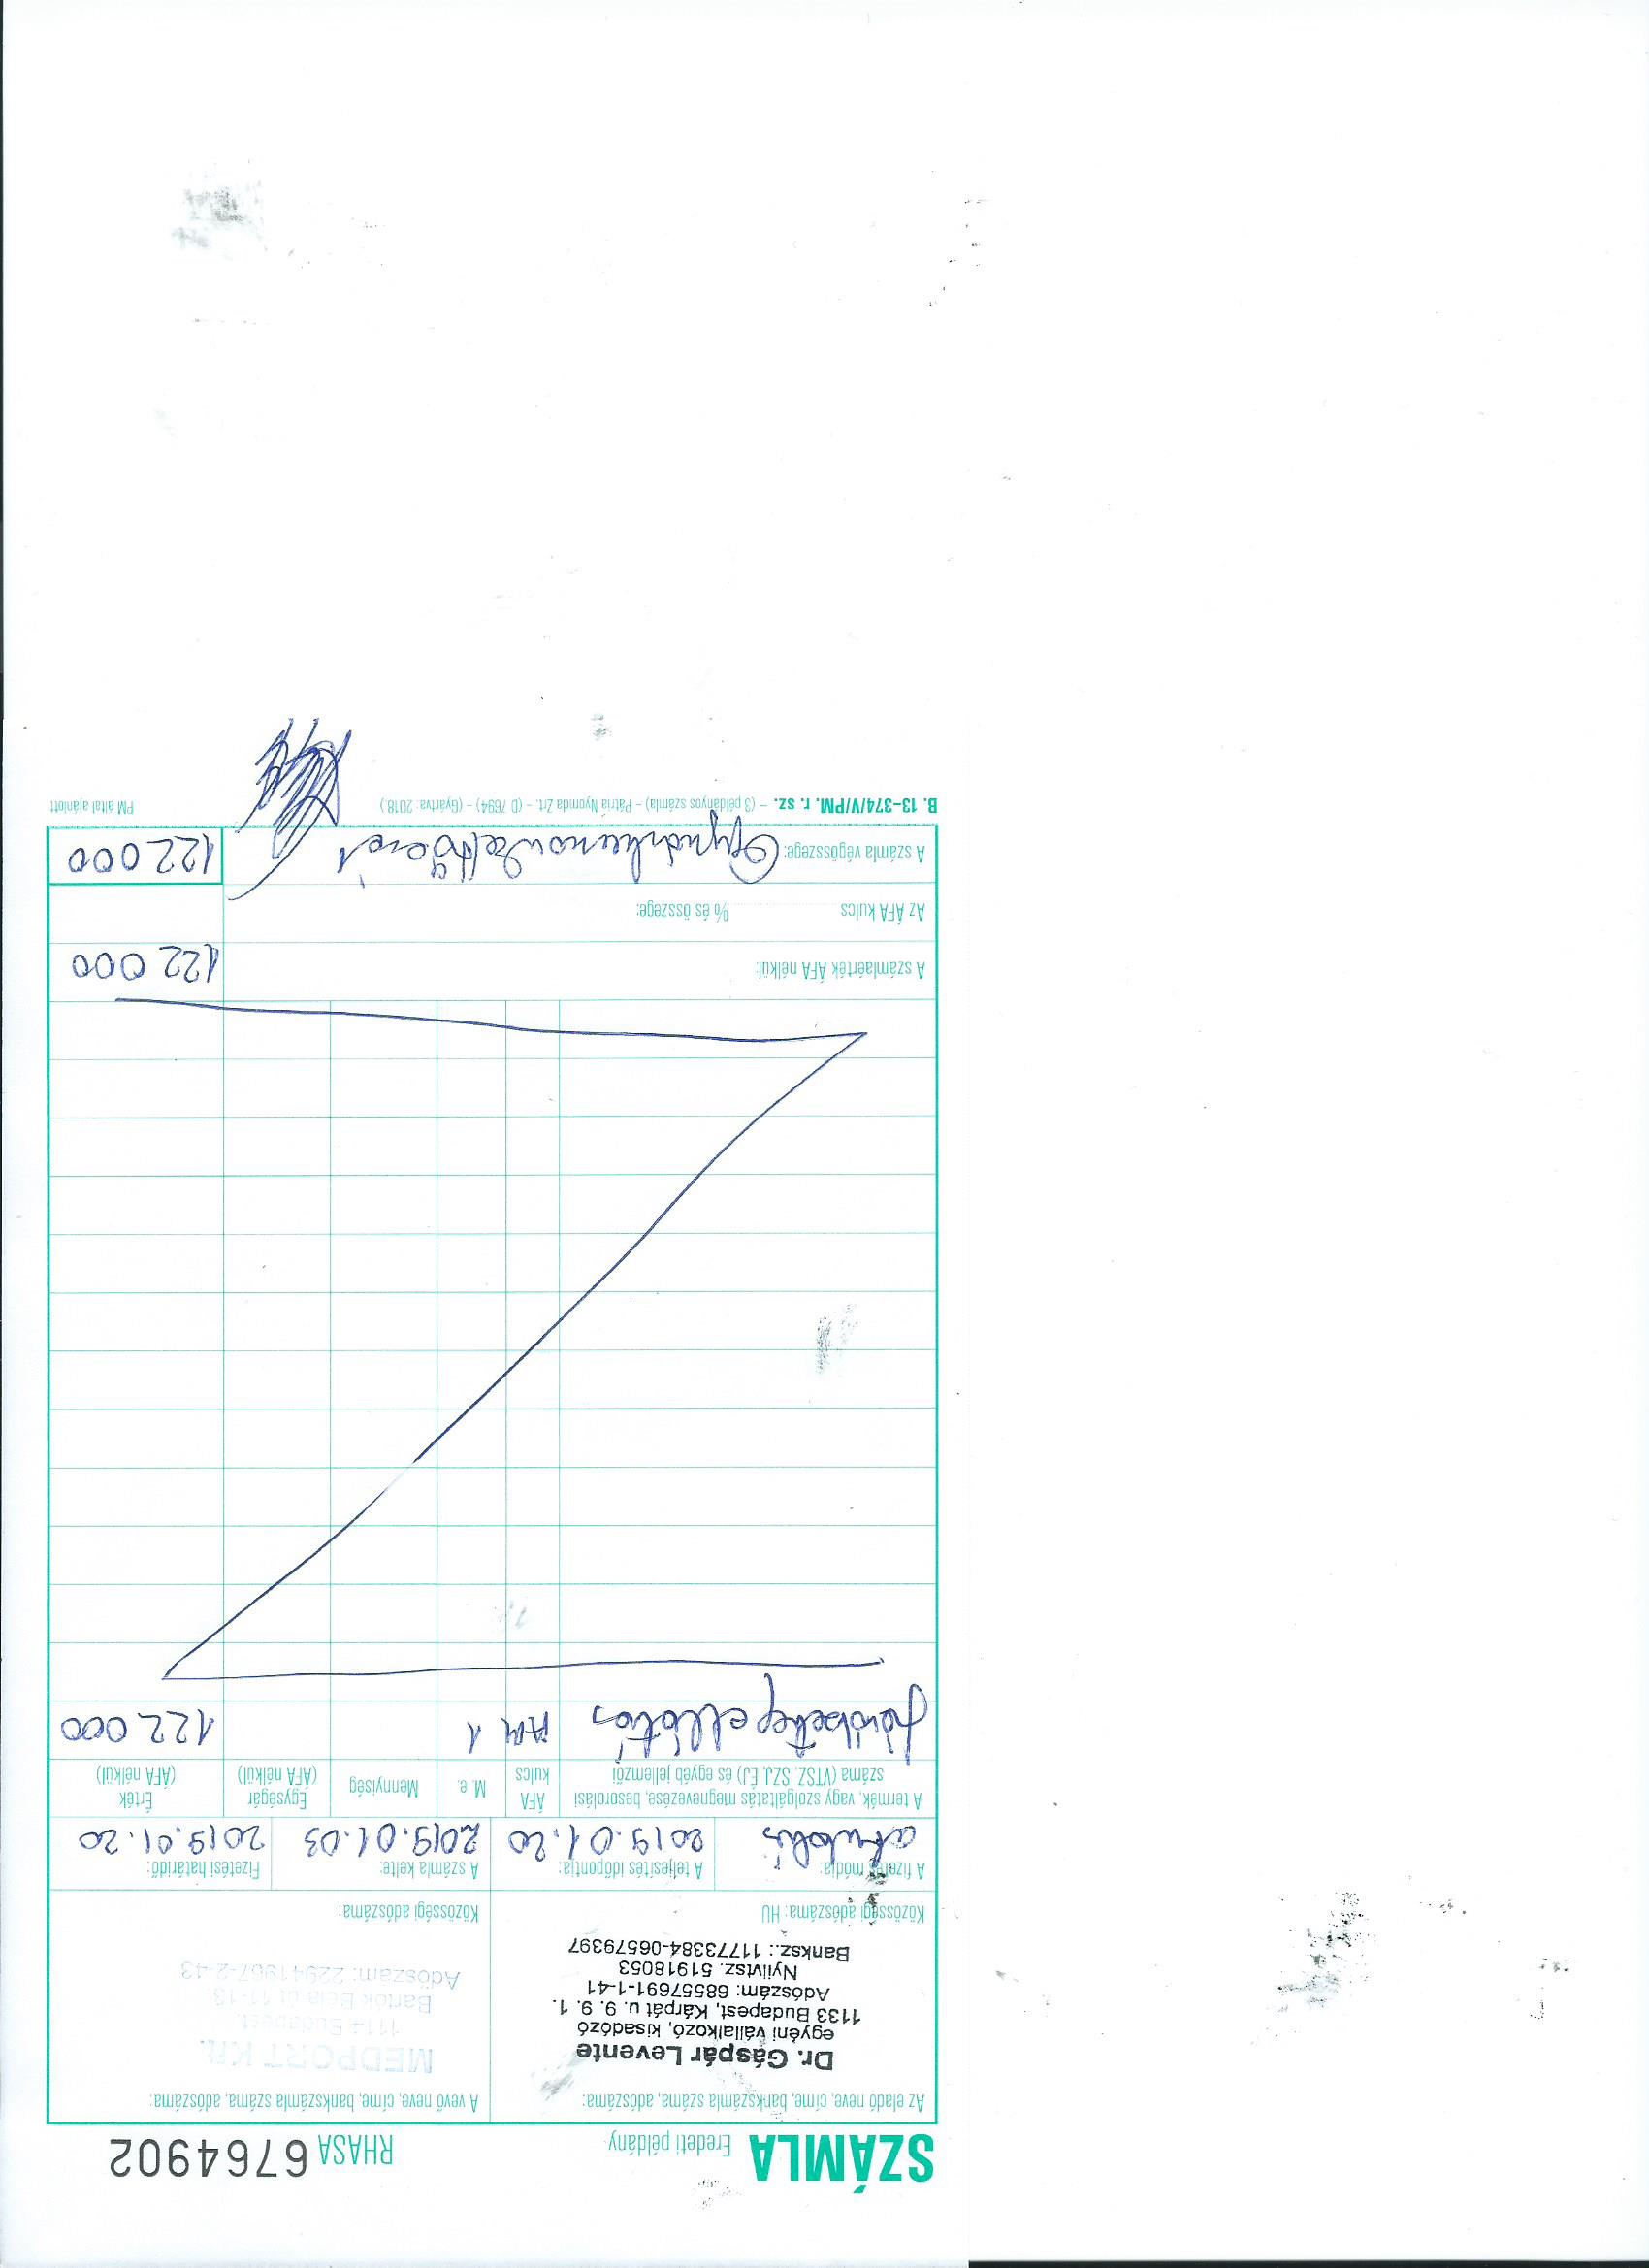 SZÁMLA Eredeti példány RHASA 6764902
Az eladó neve, címe, bankszámla száma, adószáma:
Dr. Gáspár Levente
egyéni vállalkozó, kisadózó
1133 Budapest, Kárpát u. 9. 9. 1.
Adószám: 68557691-1-41
Nyilvtsz. 51918053
Banksz.: 11773384-06579397
Közösségi adószáma: HU
A vevő neve, címe, bankszámla száma, adószáma:
MEDPORT Kft.
1114 Budapest,
Bartók Béla út 11-13
Adószám: 22941967-2-43
Közösségi adószáma:
A fizetés módja: A teljesítés időpontja: A számla kelte: Fizetési határidő:
átutalás 2019.01.20 2019.01.03 2019.01.20
A termék, vagy szolgáltatás megnevezése, besorolási száma (VTSZ, SZJ, ÉJ) és egyéb jellemzői
ÁFA kulcs
M. e.
Mennyiség
Egységár (ÁFA nélkül)
Érték (ÁFA nélkül)
járóbeteg ellátás AM 1 122 000
A számlaérték ÁFA nélkül: 122 000
Az ÁFA kulcs % és összege:
A számla végösszege: 122 000
B. 13-374/V/PM. r. sz. – (3 példányos számla) – Pátria Nyomda Zrt. – (D 7694) – (Gyártva: 2018.) PM által ajánlott